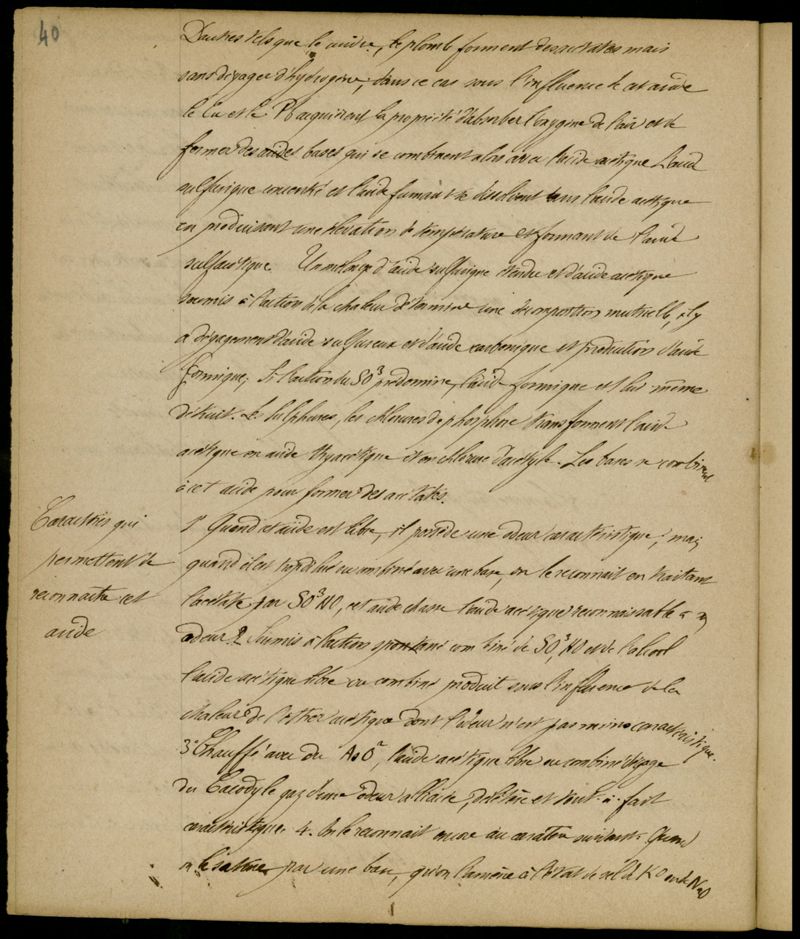 40
D'autres tels que le cuivre, le plomb forment des acétates mais
sans dégager d'hydrogène; dans ce cas sous l'influence de cet acide
le Cu et le Pb acquièrent la propriété d'absorber l'oxygène de l'air et de
former des acides bases qui se combinent alors avec l'acide acétique L'acide
sulfurique concentré et l'acide fumant se dissolvent dans l'acide acétique
en produisant une élévation de température et formant de l'acide
sulfacétique. Un mélange d'acide sulfurique étendu et d'acide acétique
soumis à l'action de la chaleur détermine une décomposition mutuelle, il y
a dégagement d'acide sulfureux et d'acide carbonique et production d'acide
formique; Si l'action du SO³ prédomine, l'acide formique est lui même
détruit. Le sulphures, les chlorures de phosphore transforment l'acide
acétique en acide thyacétique et en chlorure d'acétyle. Les bases se combinent
à cet acide pour former des acétates.
Caractères qui
permettent de
reconnaître cet
acide
1° Quand cet acide est libre, il possède une odeur caractéristique; mais
quand il est combiné avec une base, on le reconnait en traitant
l'acétate par SO³HO, cet acide chasse l'acide acétique reconnaissable à son
odeur 2° Soumis à l'action combiné de SO³,HO et de l'alcool
l'acide acétique libre ou combiné produit sous l'influence de la
chaleur de l'éther acétique dont l'odeur n'est pas moins caractéristique.
3° Chauffé avec du AsO³, l'acide acétique libre ou combiné dégage
du Cacodyle gaz d'une odeur alliacée, délétère et tout-à-fait
caractéristique 4. On le reconnait encore au caractère suivant: Quand
on le sature par une base, qu'on l'amène à l'état de sel de KO ou de NaO